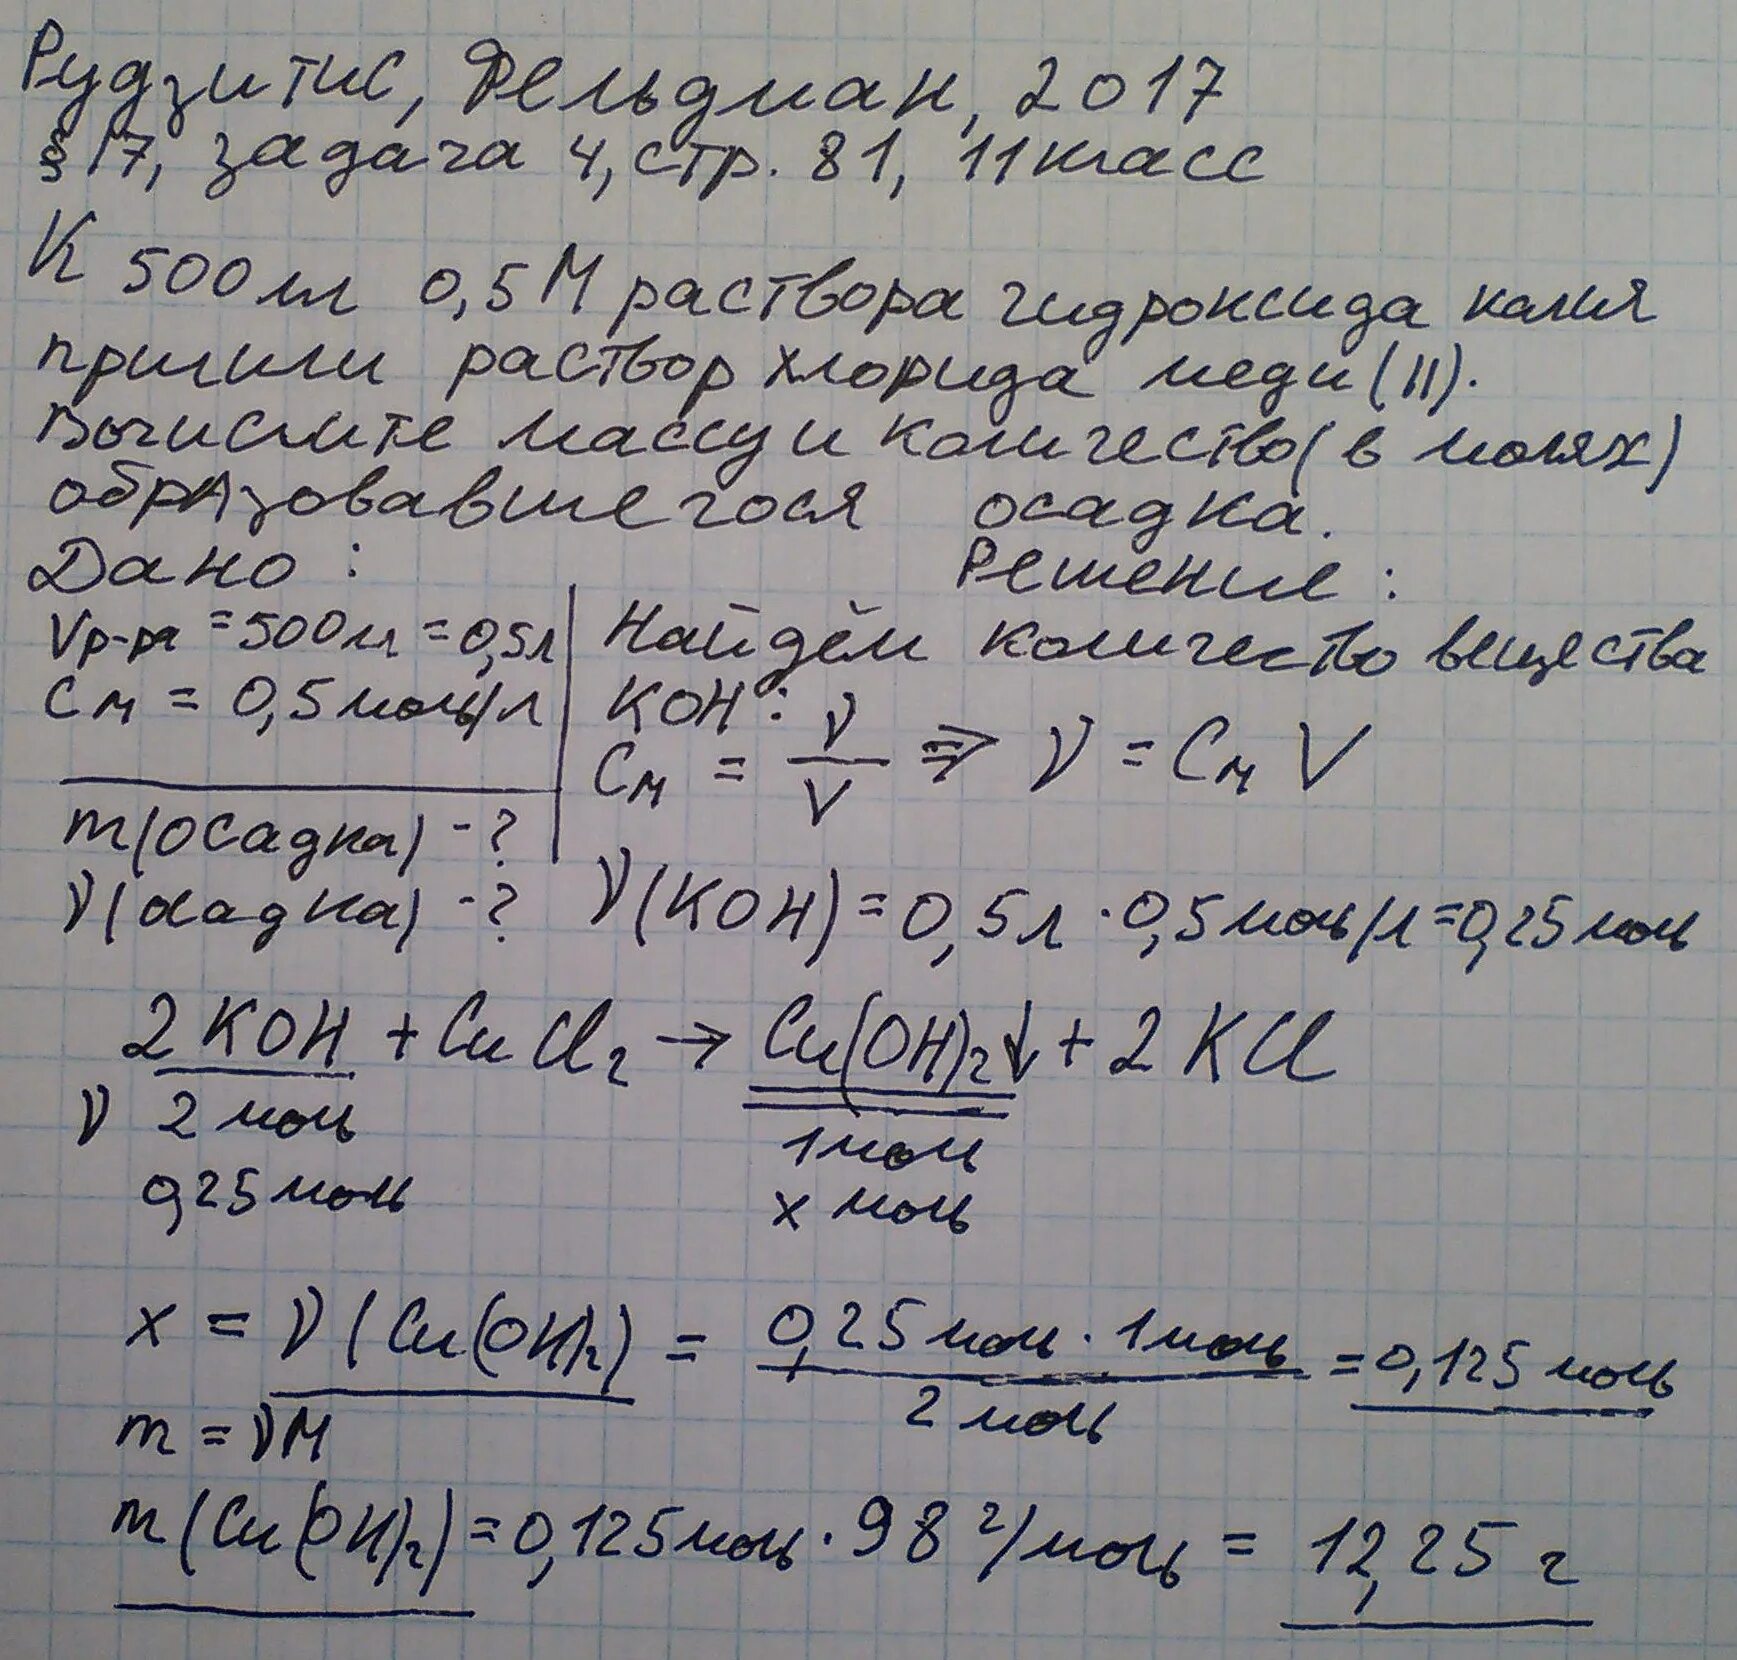 Рудзитис, Фельдман, 2017
§ 17, задача 4, стр. 81, 11 класс
К 500 мл 0,5 М раствора гидроксида калия
прилили раствор хлорида меди (II).
Вычислите массу и количество (в молях)
образовавшегося осадка.
Дано: Решение:
Vр-ра = 500 мл = 0,5 л
Cм = 0,5 моль/л
m(осадка) - ?
ν(осадка) - ?
Найдём количество вещества
KOH:
Cм = ν/V ⇒ ν = Cм V
ν(KOH) = 0,5 л · 0,5 моль/л = 0,25 моль
2KOH + CuCl₂ → Cu(OH)₂↓ + 2KCl
ν 2 моль 1 моль
0,25 моль x моль
x = ν(Cu(OH)₂) = 0,25 моль · 1 моль / 2 моль = 0,125 моль
m = νM
m(Cu(OH)₂) = 0,125 моль · 98 г/моль = 12,25 г